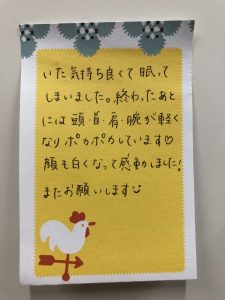 いた気持ち良くて眠って
しまいました。終わったあと
には頭・首・肩・腕が軽く
なりポカポカしています♡
顔も白くなって感動しました!
またお願いします☺